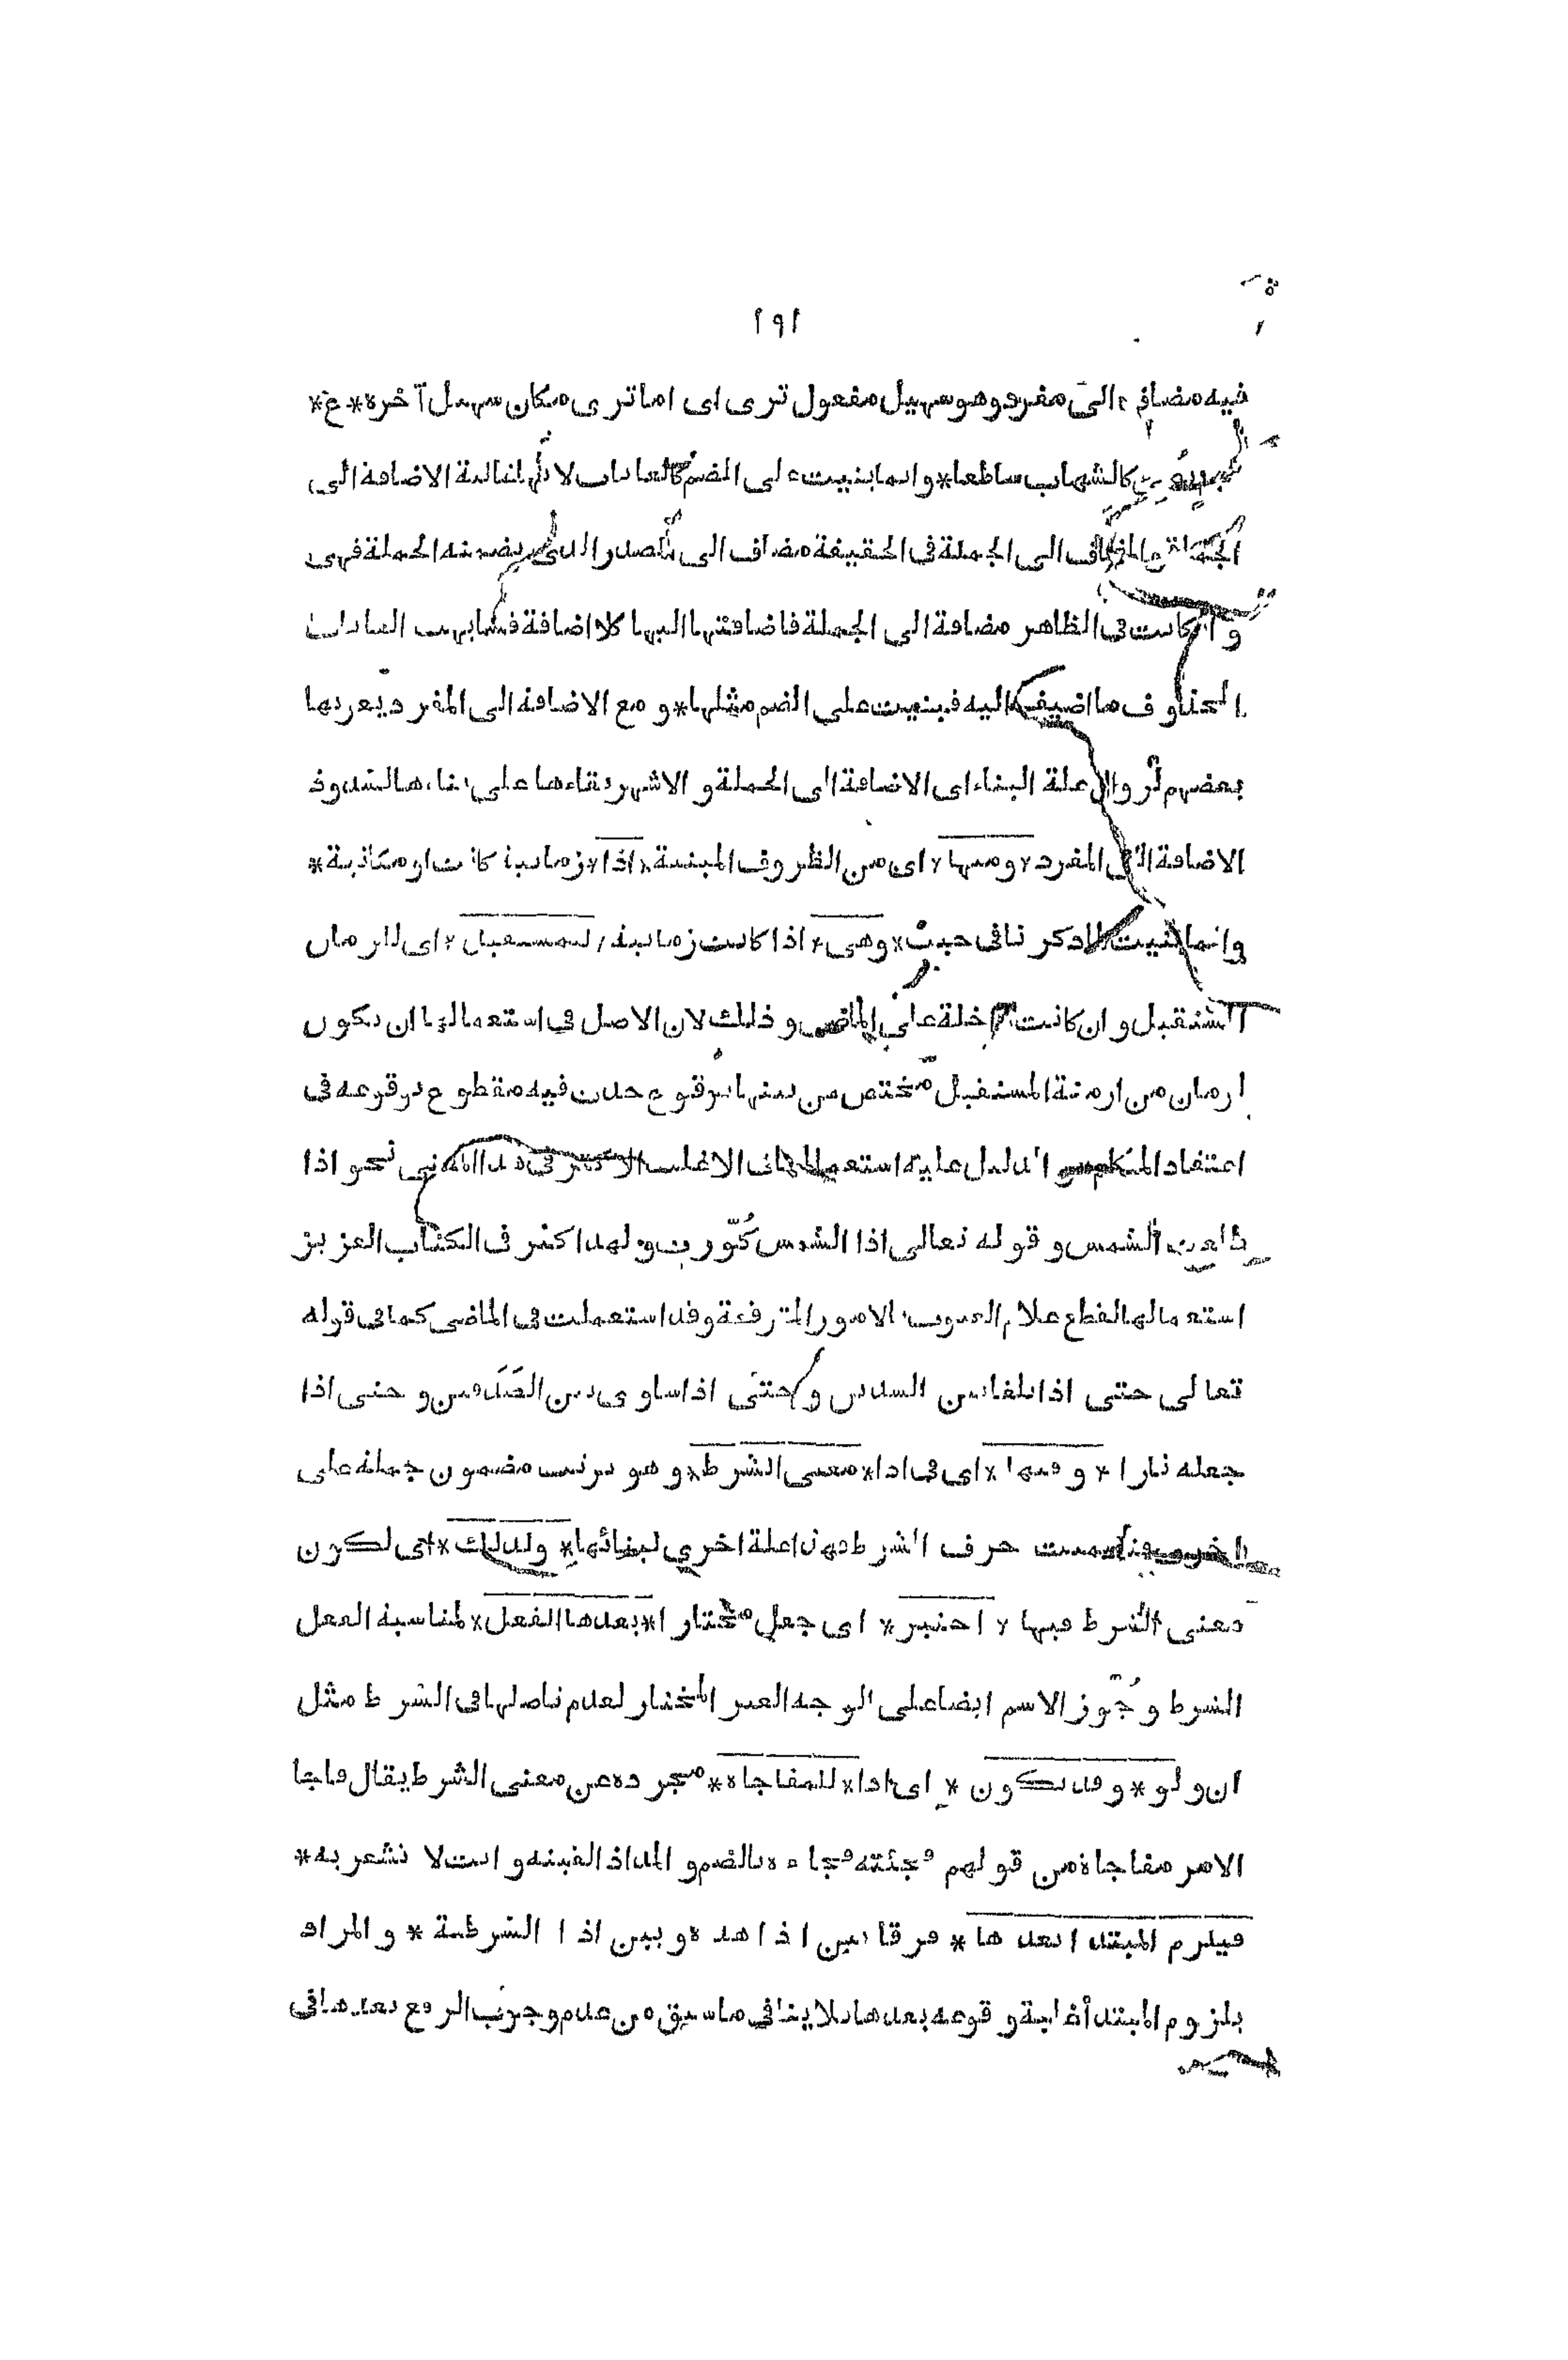 ١٩١
فيه مضاف الى مفرد وهو سهيل مفعول ترى اى اما ترى مكان سهيل آخره * ع *
كالشهاب ساطعا * وانما بنيت على الضم كالغايات لانها غالبة الاضافة الى
الجملة والمضاف الى الجملة فى الحقيقة مضاف الى المصدر الذى تضمنته الجملة فهى
وان كانت فى الظاهر مضافة الى الجملة فاضافتها اليها كلا اضافة فشابهت الغايات
المحذوف ما اضيفت اليه فبنيت على الضم مثلها * و مع الاضافة الى المفرد يعربها
بعضهم لزوال علة البناء اى الاضافة الى الجملة و الاشهر بقاءها على بناءها لشذوذ
الاضافة الى المفرد * ومنها * اى من الظروف المبنية * اذا * زمانية كانت او مكانية *
وانما بنيت لما ذكرنا فى حيث * وهى * اذا كانت زمانية * للمستقبل * اى للزمان
المستقبل و ان كانت داخلة على الماضى و ذلك لان الاصل فى استعمالها ان تكون
لزمان من ازمنة المستقبل مختص من بينها بوقوع حدث فيه مقطوع بوقوعه فى
اعتقاد المتكلم و الدليل عليه استعمالها فى الاغلب الاكثر فى هذا المعنى نحو اذا
طلعت الشمس و قوله تعالى اذا الشمس كُوّرت و لهذا كثر فى الكتاب العزيز
استعمالها لقطع علام الغيوب بالامور المترقعة وقد استعملت فى الماضى كما فى قوله
تعالى حتى اذا بلغ بين السدين و حتى اذا ساوى بين الصَدَفين و حتى اذا
جعله نارا * و فيها * اى فى اذا * معنى الشرط * و هو ترتب مضمون جملة على
اخرى فتضمنت حرف الشرط فهذا علة اخرى لبنائها * ولذلك * اى لكون
معنى الشرط فيها * اختير * اى جعل مختارا * بعدها الفعل * لمناسبة الفعل
الشرط و جُوّز الاسم ايضا على الوجه الغير المختار لعدم تاصلها فى الشرط مثل
ان و لو * و قد تكون * اى اذا * للمفاجاة * مجردة عن معنى الشرط يقال فاجا
الامر مفاجاة من قولهم فجئته فجاءة بالضم و المد اذا لقيته و انت لا تشعر به *
فيلزم المبتدا بعدها * فرقا بين اذا هذه و بين اذا الشرطية * و المراد
بلزوم المبتدا غلبة وقوعه بعدها فلا ينافى ما سبق من عدم وجوب الرفع بعدها فى